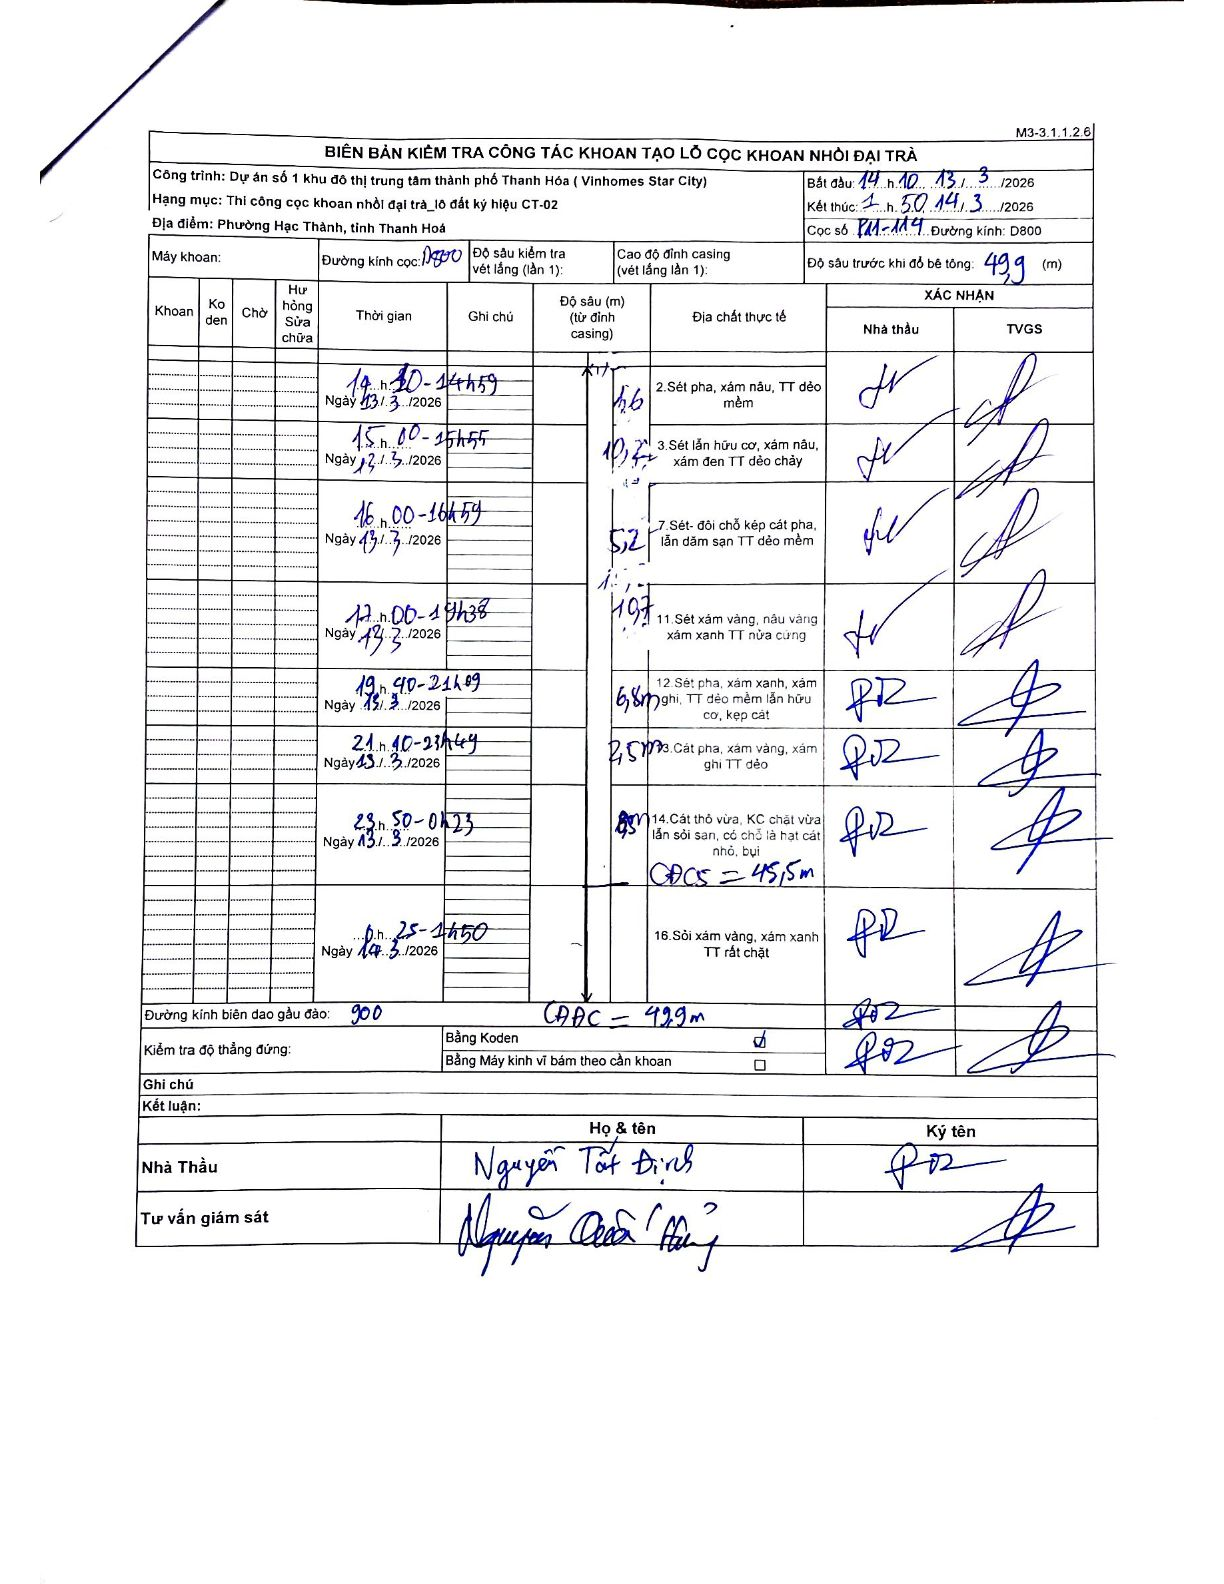 M3-3.1.1.2.6
BIÊN BẢN KIỂM TRA CÔNG TÁC KHOAN TẠO LỖ CỌC KHOAN NHỒI ĐẠI TRÀ
Công trình: Dự án số 1 khu đô thị trung tâm thành phố Thanh Hóa ( Vinhomes Star City)
Hạng mục: Thi công cọc khoan nhồi đại trà_lô đất ký hiệu CT-02
Địa điểm: Phường Hạc Thành, tỉnh Thanh Hoá
Bắt đầu: 14 h 10 13 / 3 /2026
Kết thúc: 1 h 50 14 / 3 /2026
Cọc số P11-114 Đường kính: D800
Máy khoan:
Đường kính cọc: D800
Độ sâu kiểm tra vét lắng (lần 1):
Cao độ đỉnh casing (vét lắng lần 1):
Độ sâu trước khi đổ bê tông: 49,9 (m)
Khoan
Ko den
Chờ
Hư hỏng Sửa chữa
Thời gian
Ghi chú
Độ sâu (m) (từ đỉnh casing)
Địa chất thực tế
XÁC NHẬN
Nhà thầu
TVGS
14 h 10-14h59
Ngày 13/ 3 /2026
2.Sét pha, xám nâu, TT dẻo mềm
15 h 00-15h55
Ngày 13/ 3 /2026
3.Sét lẫn hữu cơ, xám nâu, xám đen TT dẻo chảy
16 h 00-16h59
Ngày 13/ 3 /2026
5,2
7.Sét- đôi chỗ kép cát pha, lẫn dăm sạn TT dẻo mềm
17 h 00-19h38
Ngày 13/ 3 /2026
11.Sét xám vàng, nâu vàng xám xanh TT nửa cứng
19 h 40-21h09
Ngày 13/ 3 /2026
6,8m
12.Sét pha, xám xanh, xám ghi, TT dẻo mềm lẫn hữu cơ, kẹp cát
21 h 10-23h49
Ngày 13/ 3 /2026
2,5m
13.Cát pha, xám vàng, xám ghi TT dẻo
23 h 50-0h23
Ngày 13/ 3 /2026
14.Cát thô vừa, KC chặt vừa lẫn sỏi sạn, có chỗ là hạt cát nhỏ, bụi
CĐCS = 45,5m
0 h 25-1h50
Ngày 14/ 3 /2026
16.Sỏi xám vàng, xám xanh TT rất chặt
Đường kính biên dao gầu đào: 900
CĐĐC = 49,9m
Kiểm tra độ thẳng đứng:
Bằng Koden ☑
Bằng Máy kinh vĩ bám theo cần khoan ☐
Ghi chú
Kết luận:
Họ & tên
Ký tên
Nhà Thầu
Nguyễn Tất Định
Tư vấn giám sát